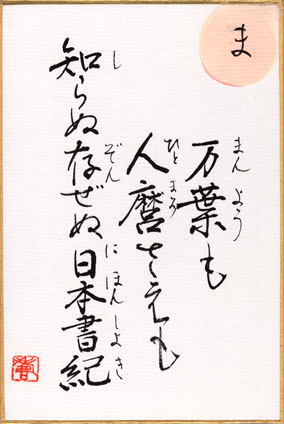 ま
万葉も
まんよう
人麿さえも
ひとまろ
知らぬ存ぜぬ日本書紀
し ぞん にほんしよき